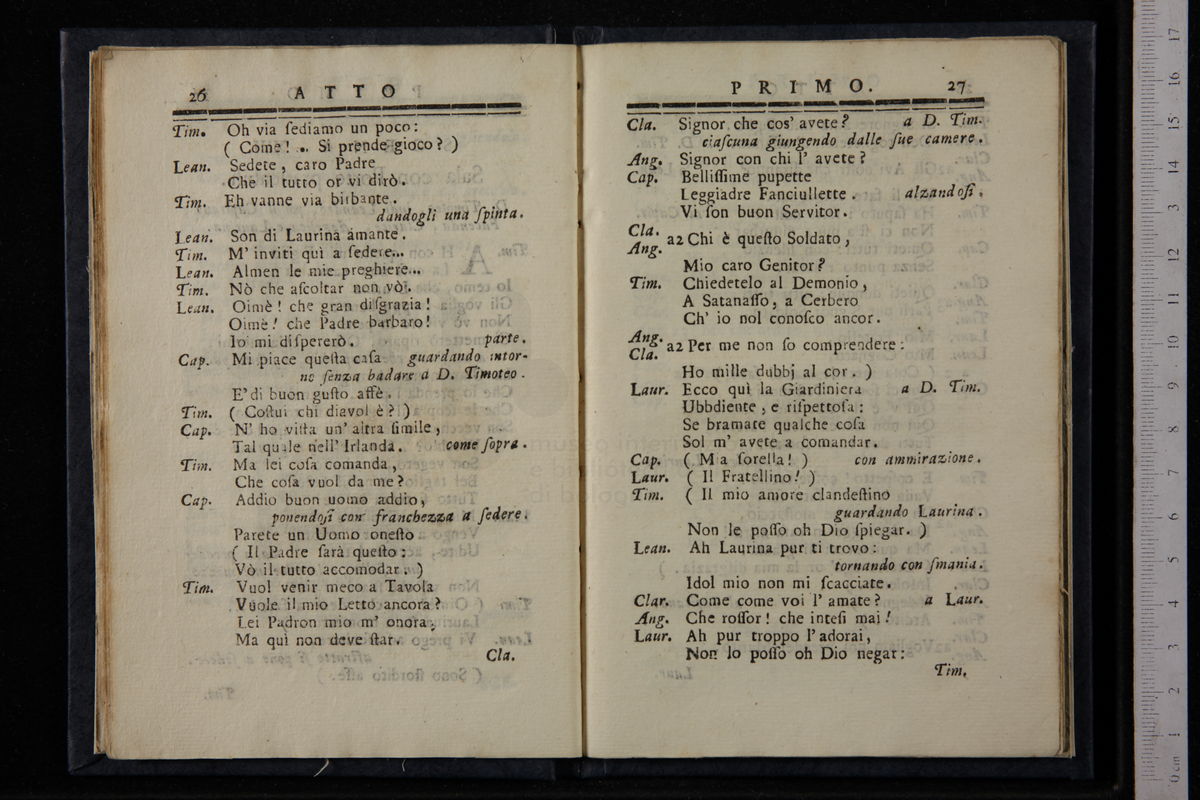 26 ATTO
Tim. Oh via ſediamo un poco:
( Come! .. Si prende gioco? )
Lean. Sedete, caro Padre
Che il tutto or vi dirò.
Tim. Eh vanne via birbante.
dandogli una ſpinta.
Lean. Son di Laurina amante.
Tim. M' inviti quì a ſedere...
Lean. Almen le mie preghiere...
Tim. Nò che aſcoltar non vò.
Lean. Oimè! che gran diſgrazia!
Oimè! che Padre barbaro!
Io mi diſpererò. parte.
Cap. Mi piace queſta caſa guardando intor-
no ſenza badare a D. Timoteo.
E' di buon guſto affè.
Tim. ( Coſtui chi diavol è? )
Cap. N' ho viſta un' altra ſimile,
Tal quale nell' Irlanda. come ſopra.
Tim. Ma lei coſa comanda,
Che coſa vuol da me?
Cap. Addio buon uomo addio,
ponendoſi con franchezza a ſedere.
Parete un Uomo oneſto
( Il Padre ſarà queſto:
Vò il tutto accomodar. )
Tim. Vuol venir meco a Tavola
Vuole il mio Letto ancora?
Lei Padron mio m' onora,
Ma quì non deve ſtar.
Cla.
PRIMO. 27
Cla. Signor che coſ' avete? a D. Tim.
ciaſcuna giungendo dalle ſue camere.
Ang. Signor con chi l' avete?
Cap. Belliſſime pupette
Leggiadre Fanciullette. alzandoſi.
Vi ſon buon Servitor.
Cla.
Ang. a2 Chi è queſto Soldato,
Mio caro Genitor?
Tim. Chiedetelo al Demonio,
A Satanaſſo, a Cerbero
Ch' io nol conoſco ancor.
Ang.
Cla. a2 Per me non ſo comprendere:
Ho mille dubbj al cor. )
Laur. Ecco quì la Giardiniera a D. Tim.
Ubbdiente, e riſpettoſa:
Se bramate qualche coſa
Sol m' avete a comandar.
Cap. ( Mia ſorella! ) con ammirazione.
Laur. ( Il Fratellino! )
Tim. ( Il mio amore clandeſtino
guardando Laurina.
Non le poſſo oh Dio ſpiegar. )
Lean. Ah Laurina pur ti trovo:
tornando con ſmania.
Idol mio non mi ſcacciate.
Clar. Come come voi l' amate? a Laur.
Ang. Che roſſor! che inteſi mai!
Laur. Ah pur troppo l' adorai,
Non lo poſſo oh Dio negar:
Tim.